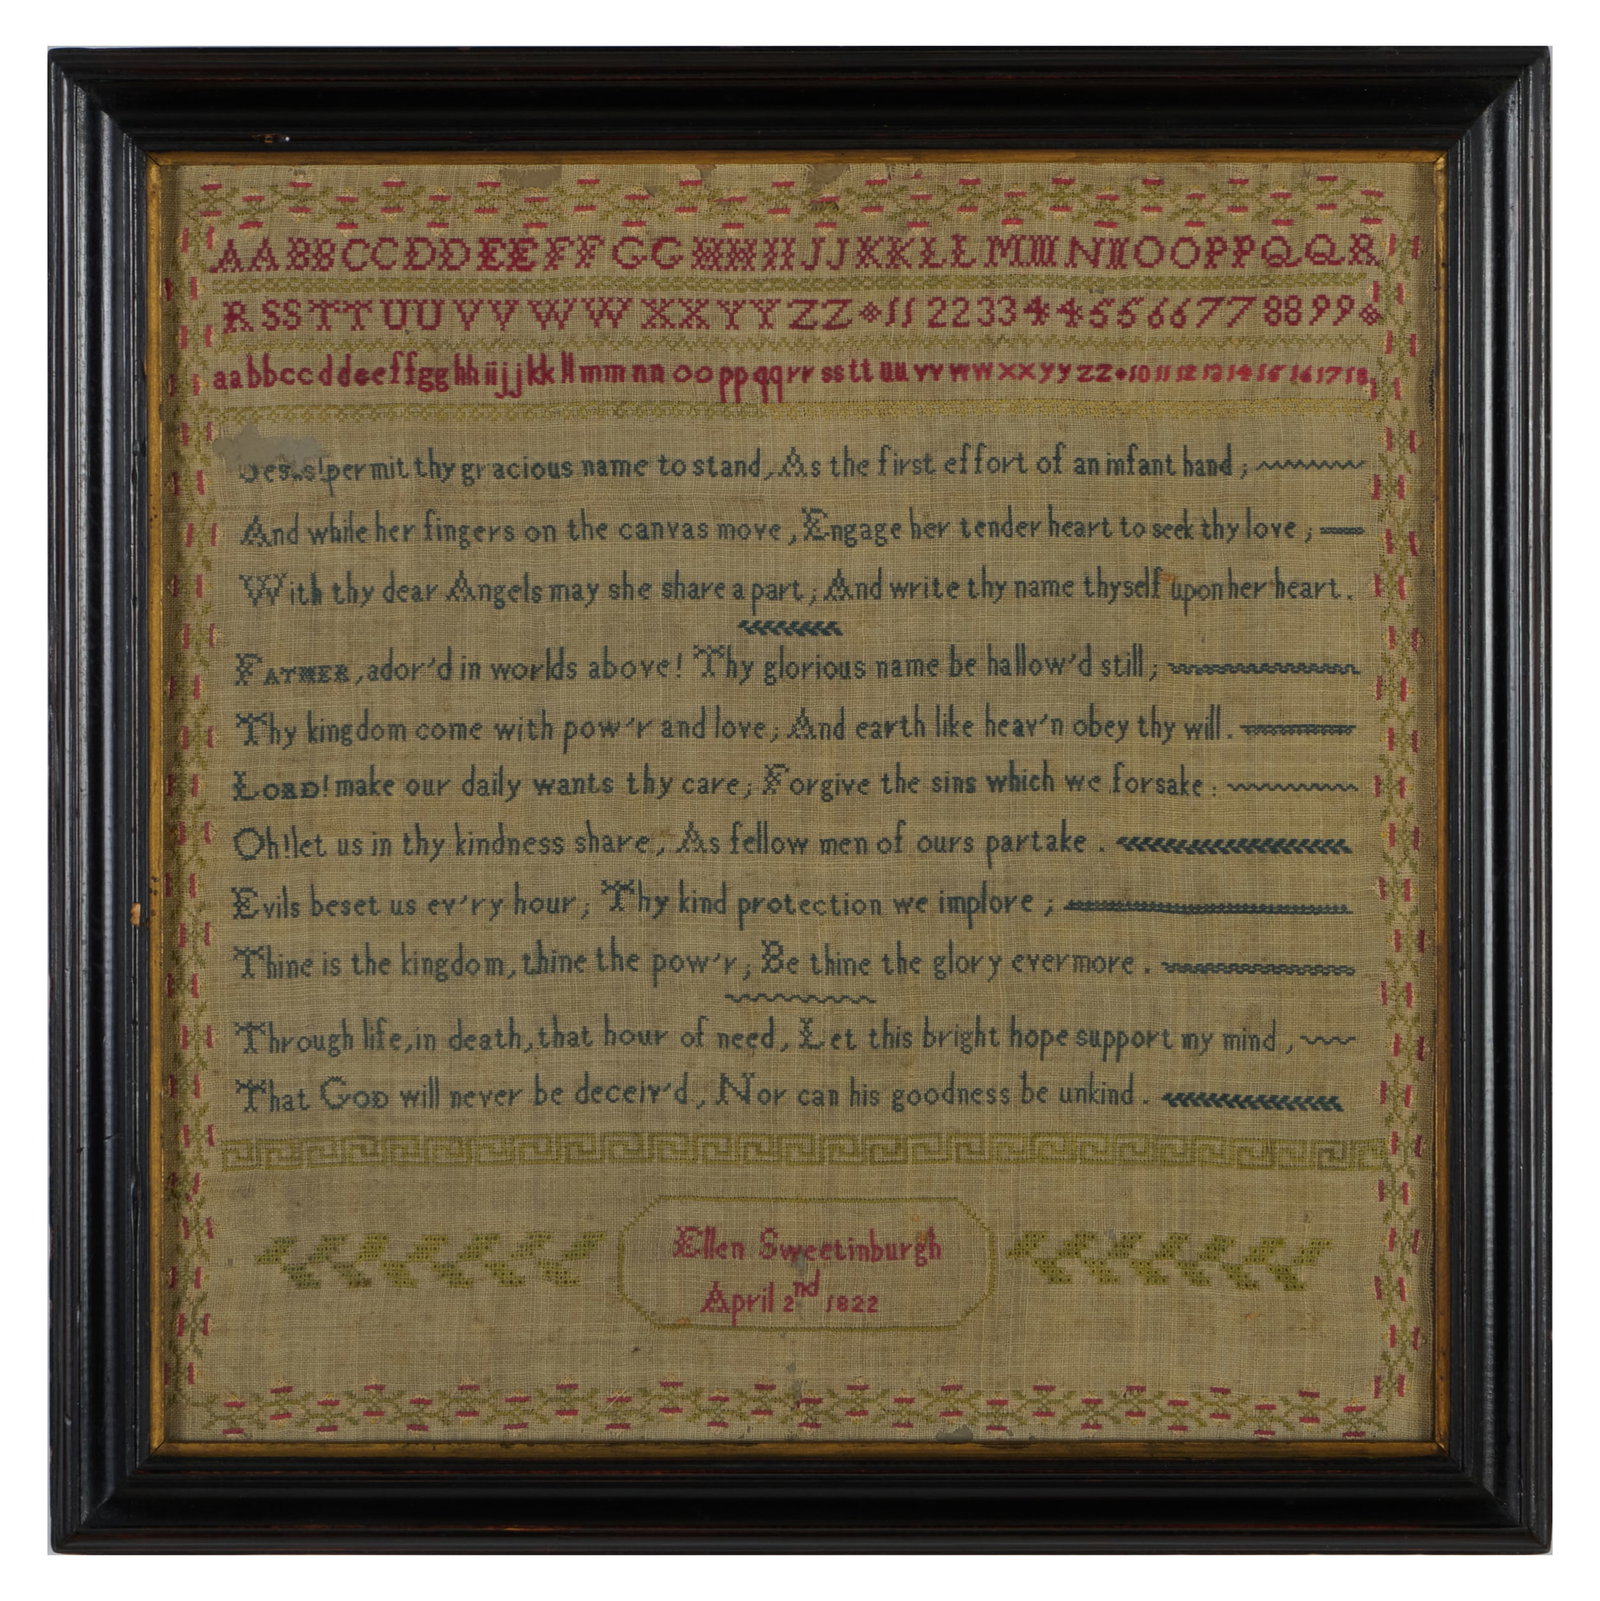 AABBCCDDEEFFGGHHIIJJKKLLMMNNOOPPQQR
RSSTTUUVVWWXXYYZZ 112233445566778899
aabbccddeeffgghhiijjkkllmmnnooppqqrrssttuuvvwwxxyyzz 10 11 12 13 14 15 16 17 18
Jesus! permit thy gracious name to stand, As the first effort of an infant hand;
And while her fingers on the canvas move, Engage her tender heart to seek thy love;
With thy dear Angels may she share a part; And write thy name thyself upon her heart.
FATHER, ador'd in worlds above! Thy glorious name be hallow'd still;
Thy kingdom come with pow'r and love; And earth like heav'n obey thy will.
LORD! make our daily wants thy care; Forgive the sins which we forsake:
Oh! let us in thy kindness share, As fellow men of ours partake.
Evils beset us ev'ry hour; Thy kind protection we implore;
Thine is the kingdom, thine the pow'r, Be thine the glory evermore.
Through life, in death, that hour of need, Let this bright hope support my mind,
That GOD will never be deceiv'd, Nor can his goodness be unkind.
Ellen Sweetinburgh
April 2nd 1822